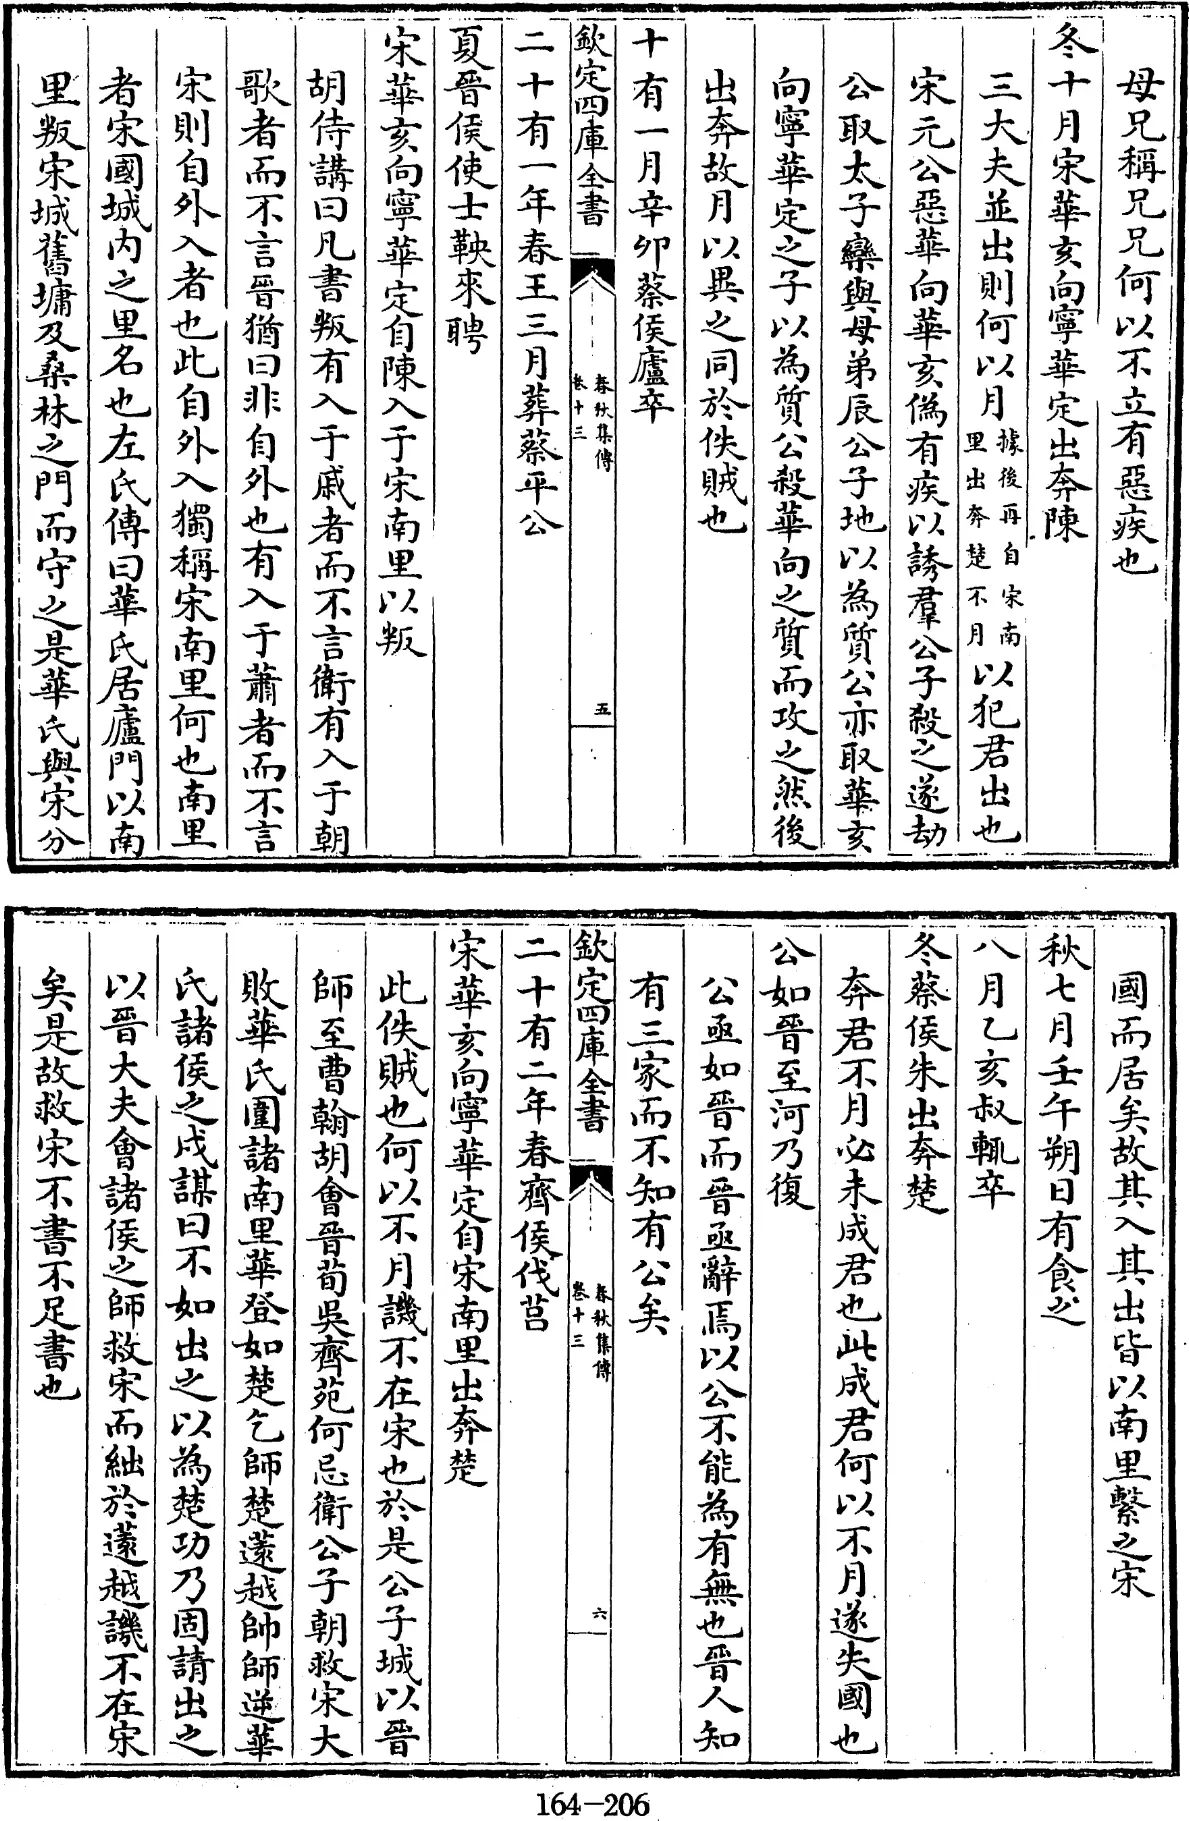 母兄稱兄兄何以不立有惡疾也
冬十月宋華亥向寧華定出奔陳
三大夫並出則何以月據後再自宋南里出奔楚不月以犯君出也
宋元公惡華向華亥偽有疾以誘羣公子殺之遂劫
公取太子欒與母弟辰公子地以為質公亦取華亥
向寧華定之子以為質公殺華向之質而攻之然後
出奔故月以異之同於佚賊也
十有一月辛卯蔡侯廬卒
欽定四庫全書
春秋集傳
卷十三
五
二十有一年春王三月葬蔡平公
夏晉侯使士鞅來聘
宋華亥向寧華定自陳入于宋南里以叛
胡侍講曰凡書叛有入于戚者而不言衛有入于朝
歌者而不言晉猶曰非自外也有入于蕭者而不言
宋則自外入者也此自外入獨稱宋南里何也南里
者宋國城内之里名也左氏傳曰華氏居廬門以南
里叛宋城舊墉及桑林之門而守之是華氏與宋分
國而居矣故其入其出皆以南里繫之宋
秋七月壬午朔日有食之
八月乙亥叔輒卒
冬蔡侯朱出奔楚
奔君不月必未成君也此成君何以不月遂失國也
公如晉至河乃復
公亟如晉而晉亟辭焉以公不能為有無也晉人知
有三家而不知有公矣
欽定四庫全書
春秋集傳
卷十三
六
二十有二年春齊侯伐莒
宋華亥向寧華定自宋南里出奔楚
此佚賊也何以不月譏不在宋也於是公子城以晉
師至曹翰胡會晉荀吳齊苑何忌衛公子朝救宋大
敗華氏圍諸南里華登如楚乞師楚薳越帥師逆華
氏諸侯之戍謀曰不如出之以為楚功乃固請出之
以晉大夫會諸侯之師救宋而絀於薳越譏不在宋
矣是故救宋不書不足書也
164-206